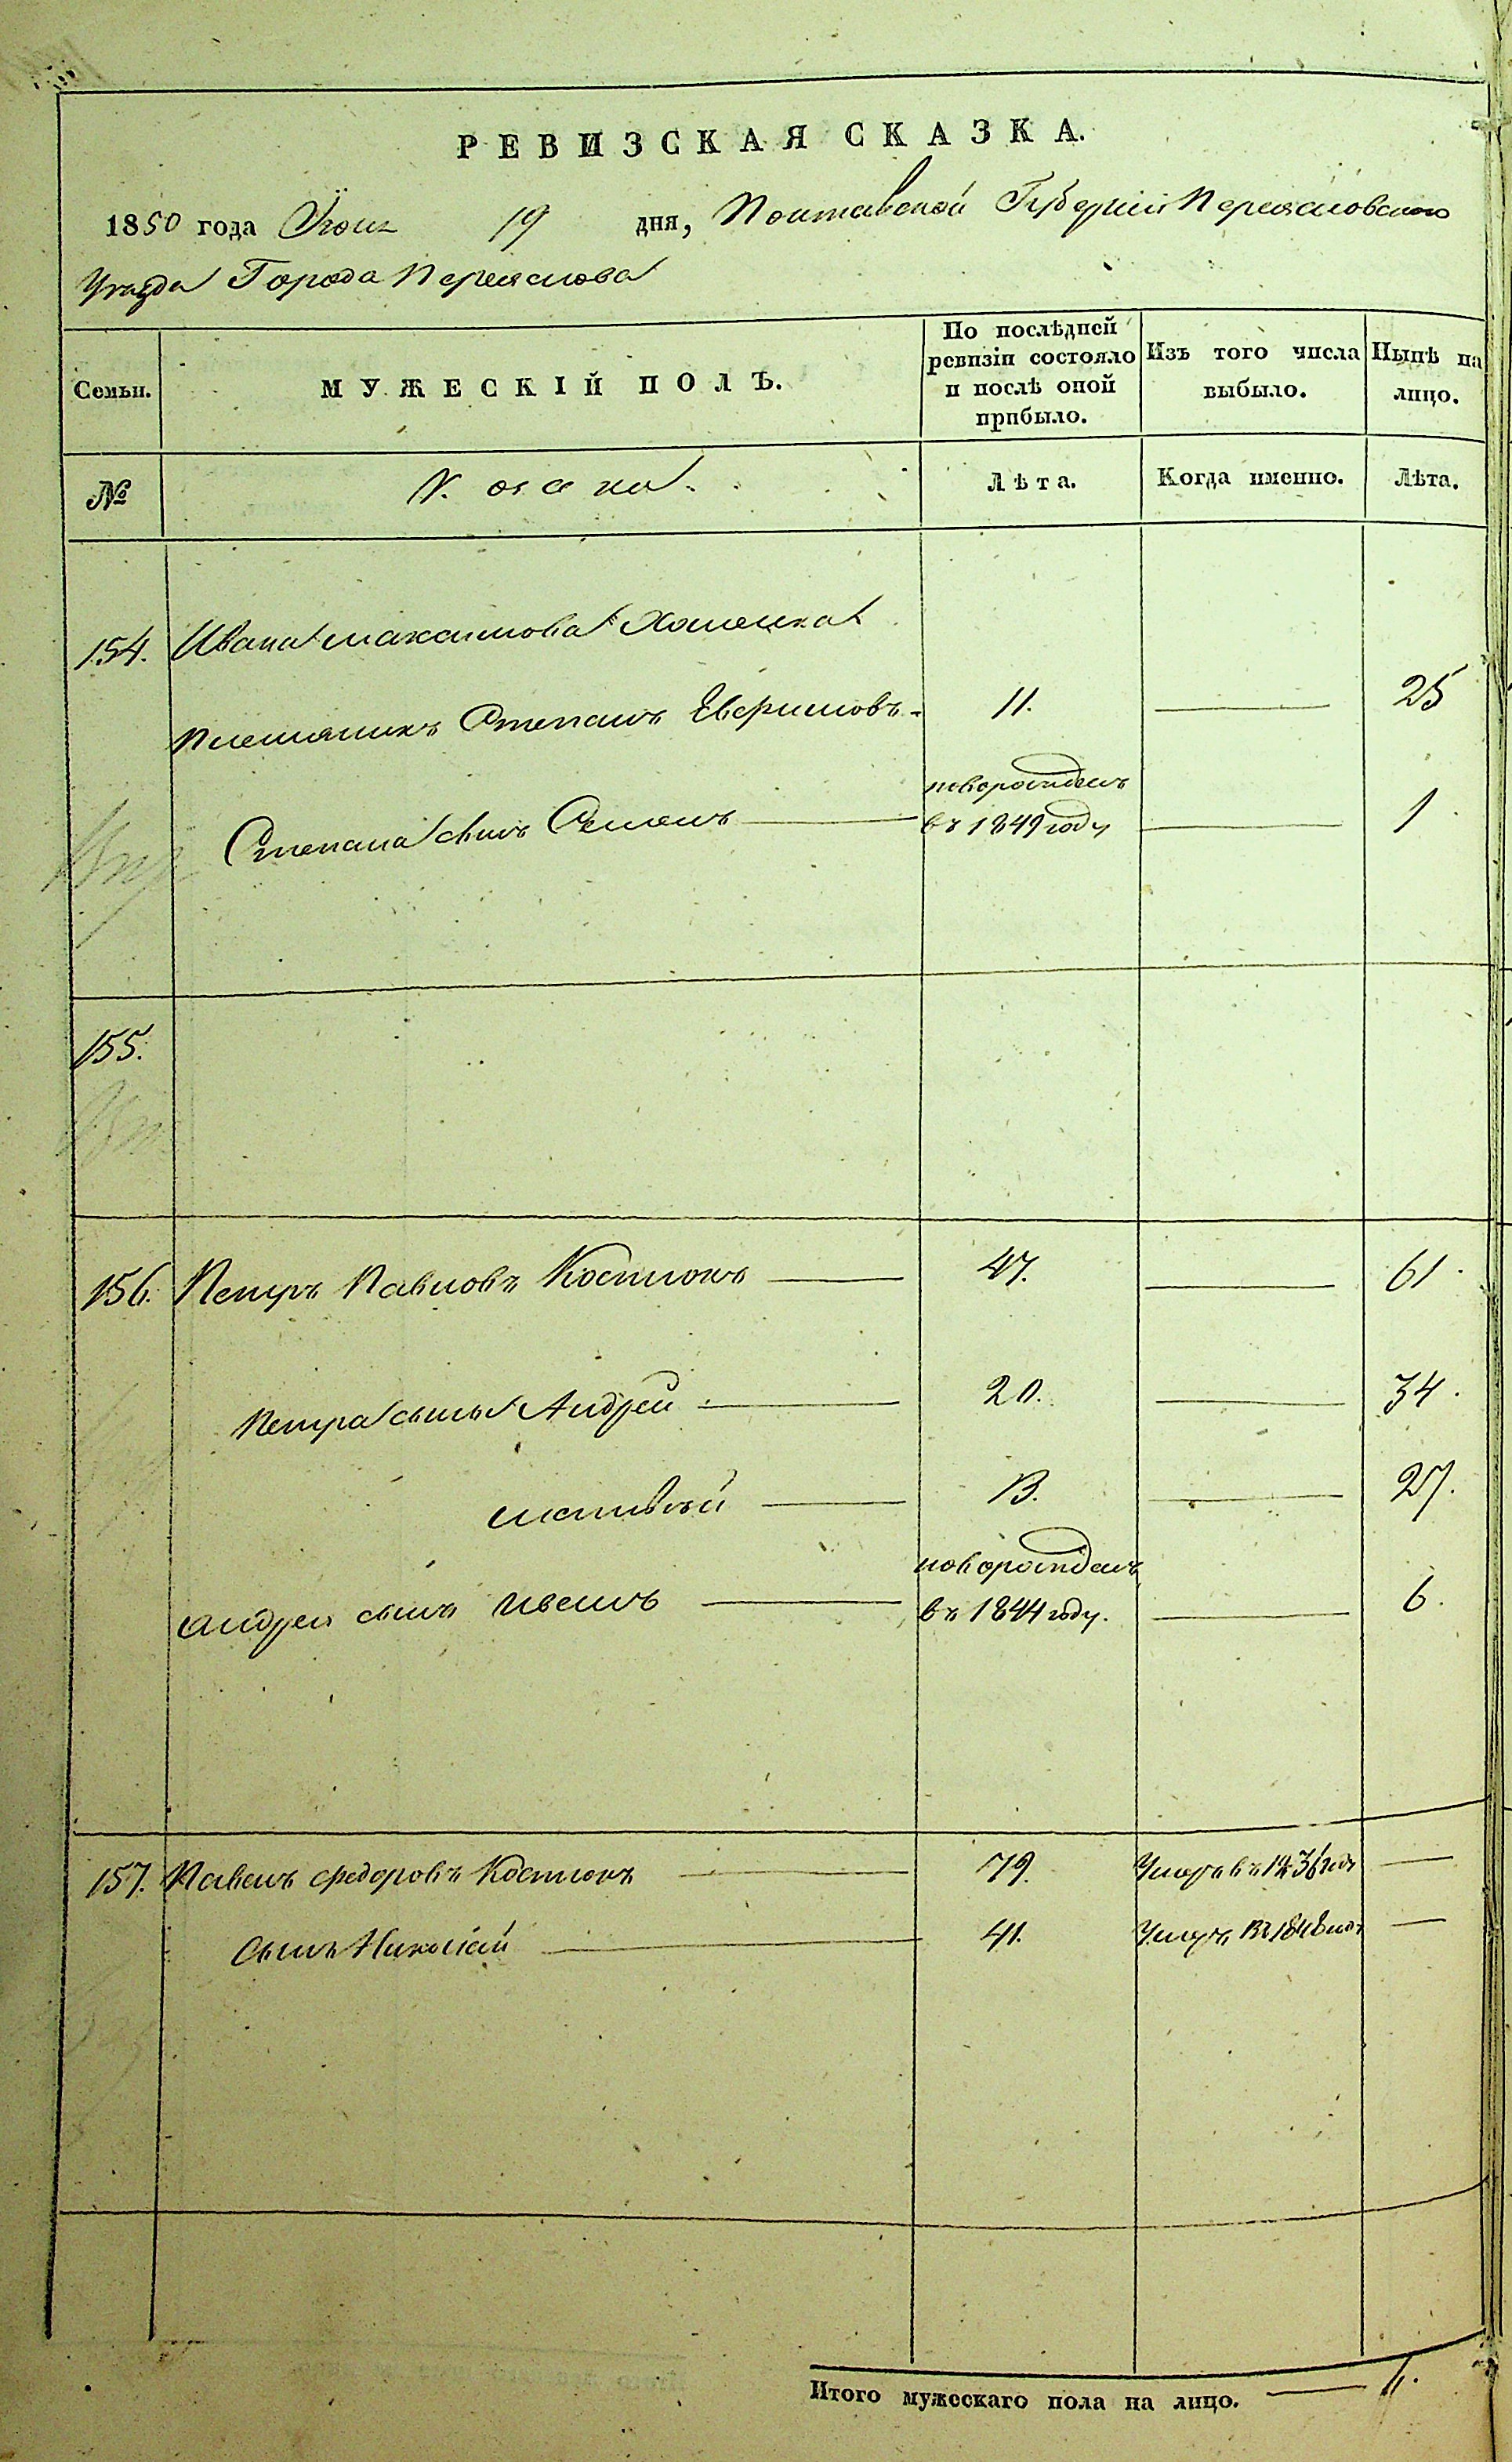 РЕВИЗСКАЯ СКАЗКА.
1850 года Июня 19 дня, Полтавской Губерніи Переясловского
Уезда Города Переяслова
Семьи. МУЖЕСКІЙ ПОЛЪ. По послѣдней ревизіи состояло и послѣ оной прибыло. Изъ того числа выбыло. Нынѣ на лицо.
№ Лѣта. Когда именно. Лѣта.
154. Ивана Максимова
племяникъ Степанъ 11. 25
Степана сынъ Семенъ новорожденъ въ 1849 году 1
155.
156. Петръ Павловъ Костюкъ 47. 61
Петра сынья Андрей 20. 34.
Матвѣй 13. 27.
Андрея сынъ Иванъ новорожденъ въ 1844 году. 6.
157. Павелъ Федоровъ Костюкъ 79. Умеръ въ 1836 году
Сынъ Николай 41. Умеръ въ 1848 году
Итого мужескаго пола на лицо.